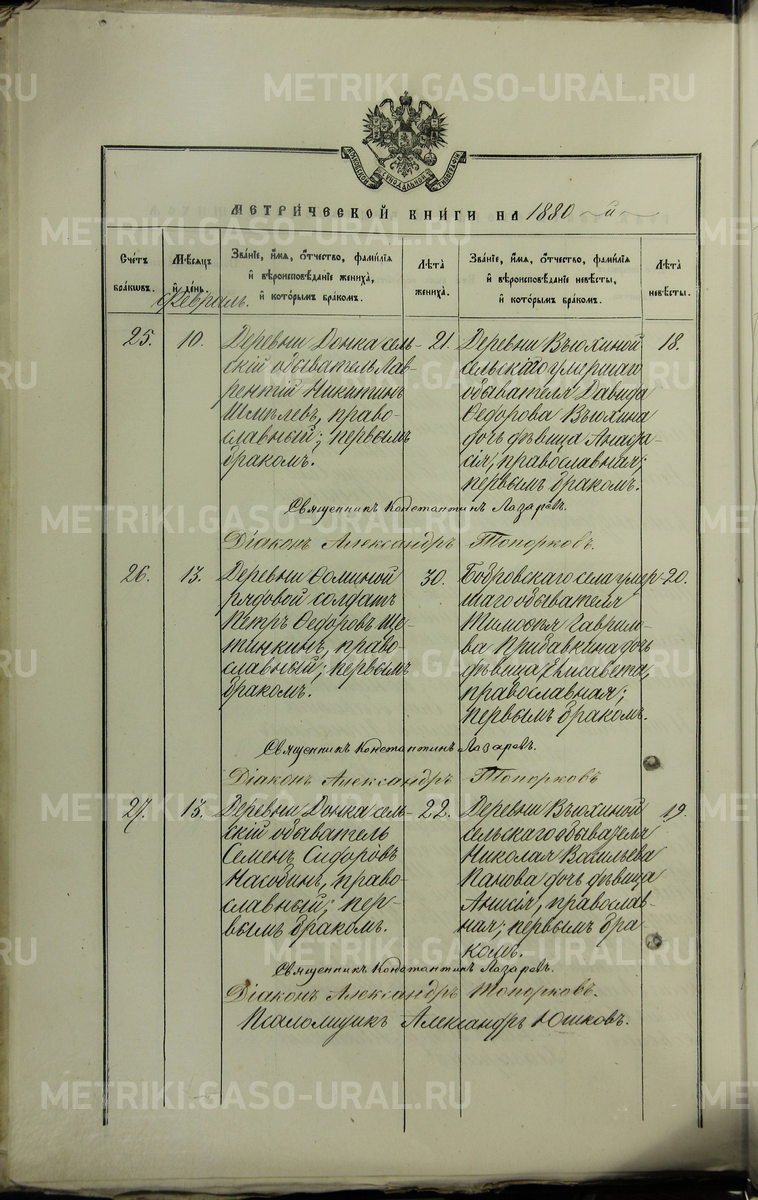 METRIKI.GASO-URAL.RU
МОСКОВСКОЙ СѴНОДАЛЬНОЙ ТИПОГРАФІИ
МЕТРИ́ЧЕСКОЙ КНИ́ГИ НА 1880-й
Сче́тъ бра́кωвъ.
Мѣ́сяцъ и҆ де́нь.
Зва́нїе, и҆́мя, ѻ҆́тчество, фами́лїя и҆ вѣроисповѣ́данїе жениха̀, и҆ кото́рымъ бра́комъ.
Лѣ́та жениха̀.
Зва́нїе, и҆́мя, ѻ҆́тчество, фами́лїя и҆ вѣроисповѣ́данїе невѣ́сты, и҆ кото́рымъ бра́комъ.
Лѣ́та невѣ́сты.
Февраль.
25.
10.
Деревни Донка сель-
скій обыватель Лав-
рентій Никитинъ
Шмылевъ, право-
славный; первымъ
бракомъ.
21.
Деревни Вьюхиной
сельскаго умершаго
обывателя Давида
Ѳедорова Вьюхина
дочь дѣвица Анаста-
сія, православная;
первымъ бракомъ.
18.
Священникъ Константинъ Лазаревъ.
Діаконъ Александръ Топорковъ.
26.
13.
Деревни Ѳоминой
рядовой солдатъ
Петръ Ѳедоровъ Ще-
тинкинъ, право-
славный; первымъ
бракомъ.
30.
Бобровскаго села умер-
шаго обывателя
Тимоѳея Гаврило-
ва Прибавкина дочь
дѣвица Елисавета,
православная;
первымъ бракомъ.
20.
Священникъ Константинъ Лазаревъ.
Діаконъ Александръ Топорковъ
27.
13.
Деревни Донка сель-
скій обыватель
Семенъ Сидоровъ
Насобинъ, право-
славный; пер-
вымъ бракомъ.
22.
Деревни Вьюхиной
сельскаго обывателя
Николая Васильева
Панова дочь дѣвица
Анисія, православ-
ная; первымъ бра-
комъ.
19.
Священникъ Константинъ Лазаревъ.
Діаконъ Александръ Топорковъ.
Псаломщикъ Александръ Юшковъ.